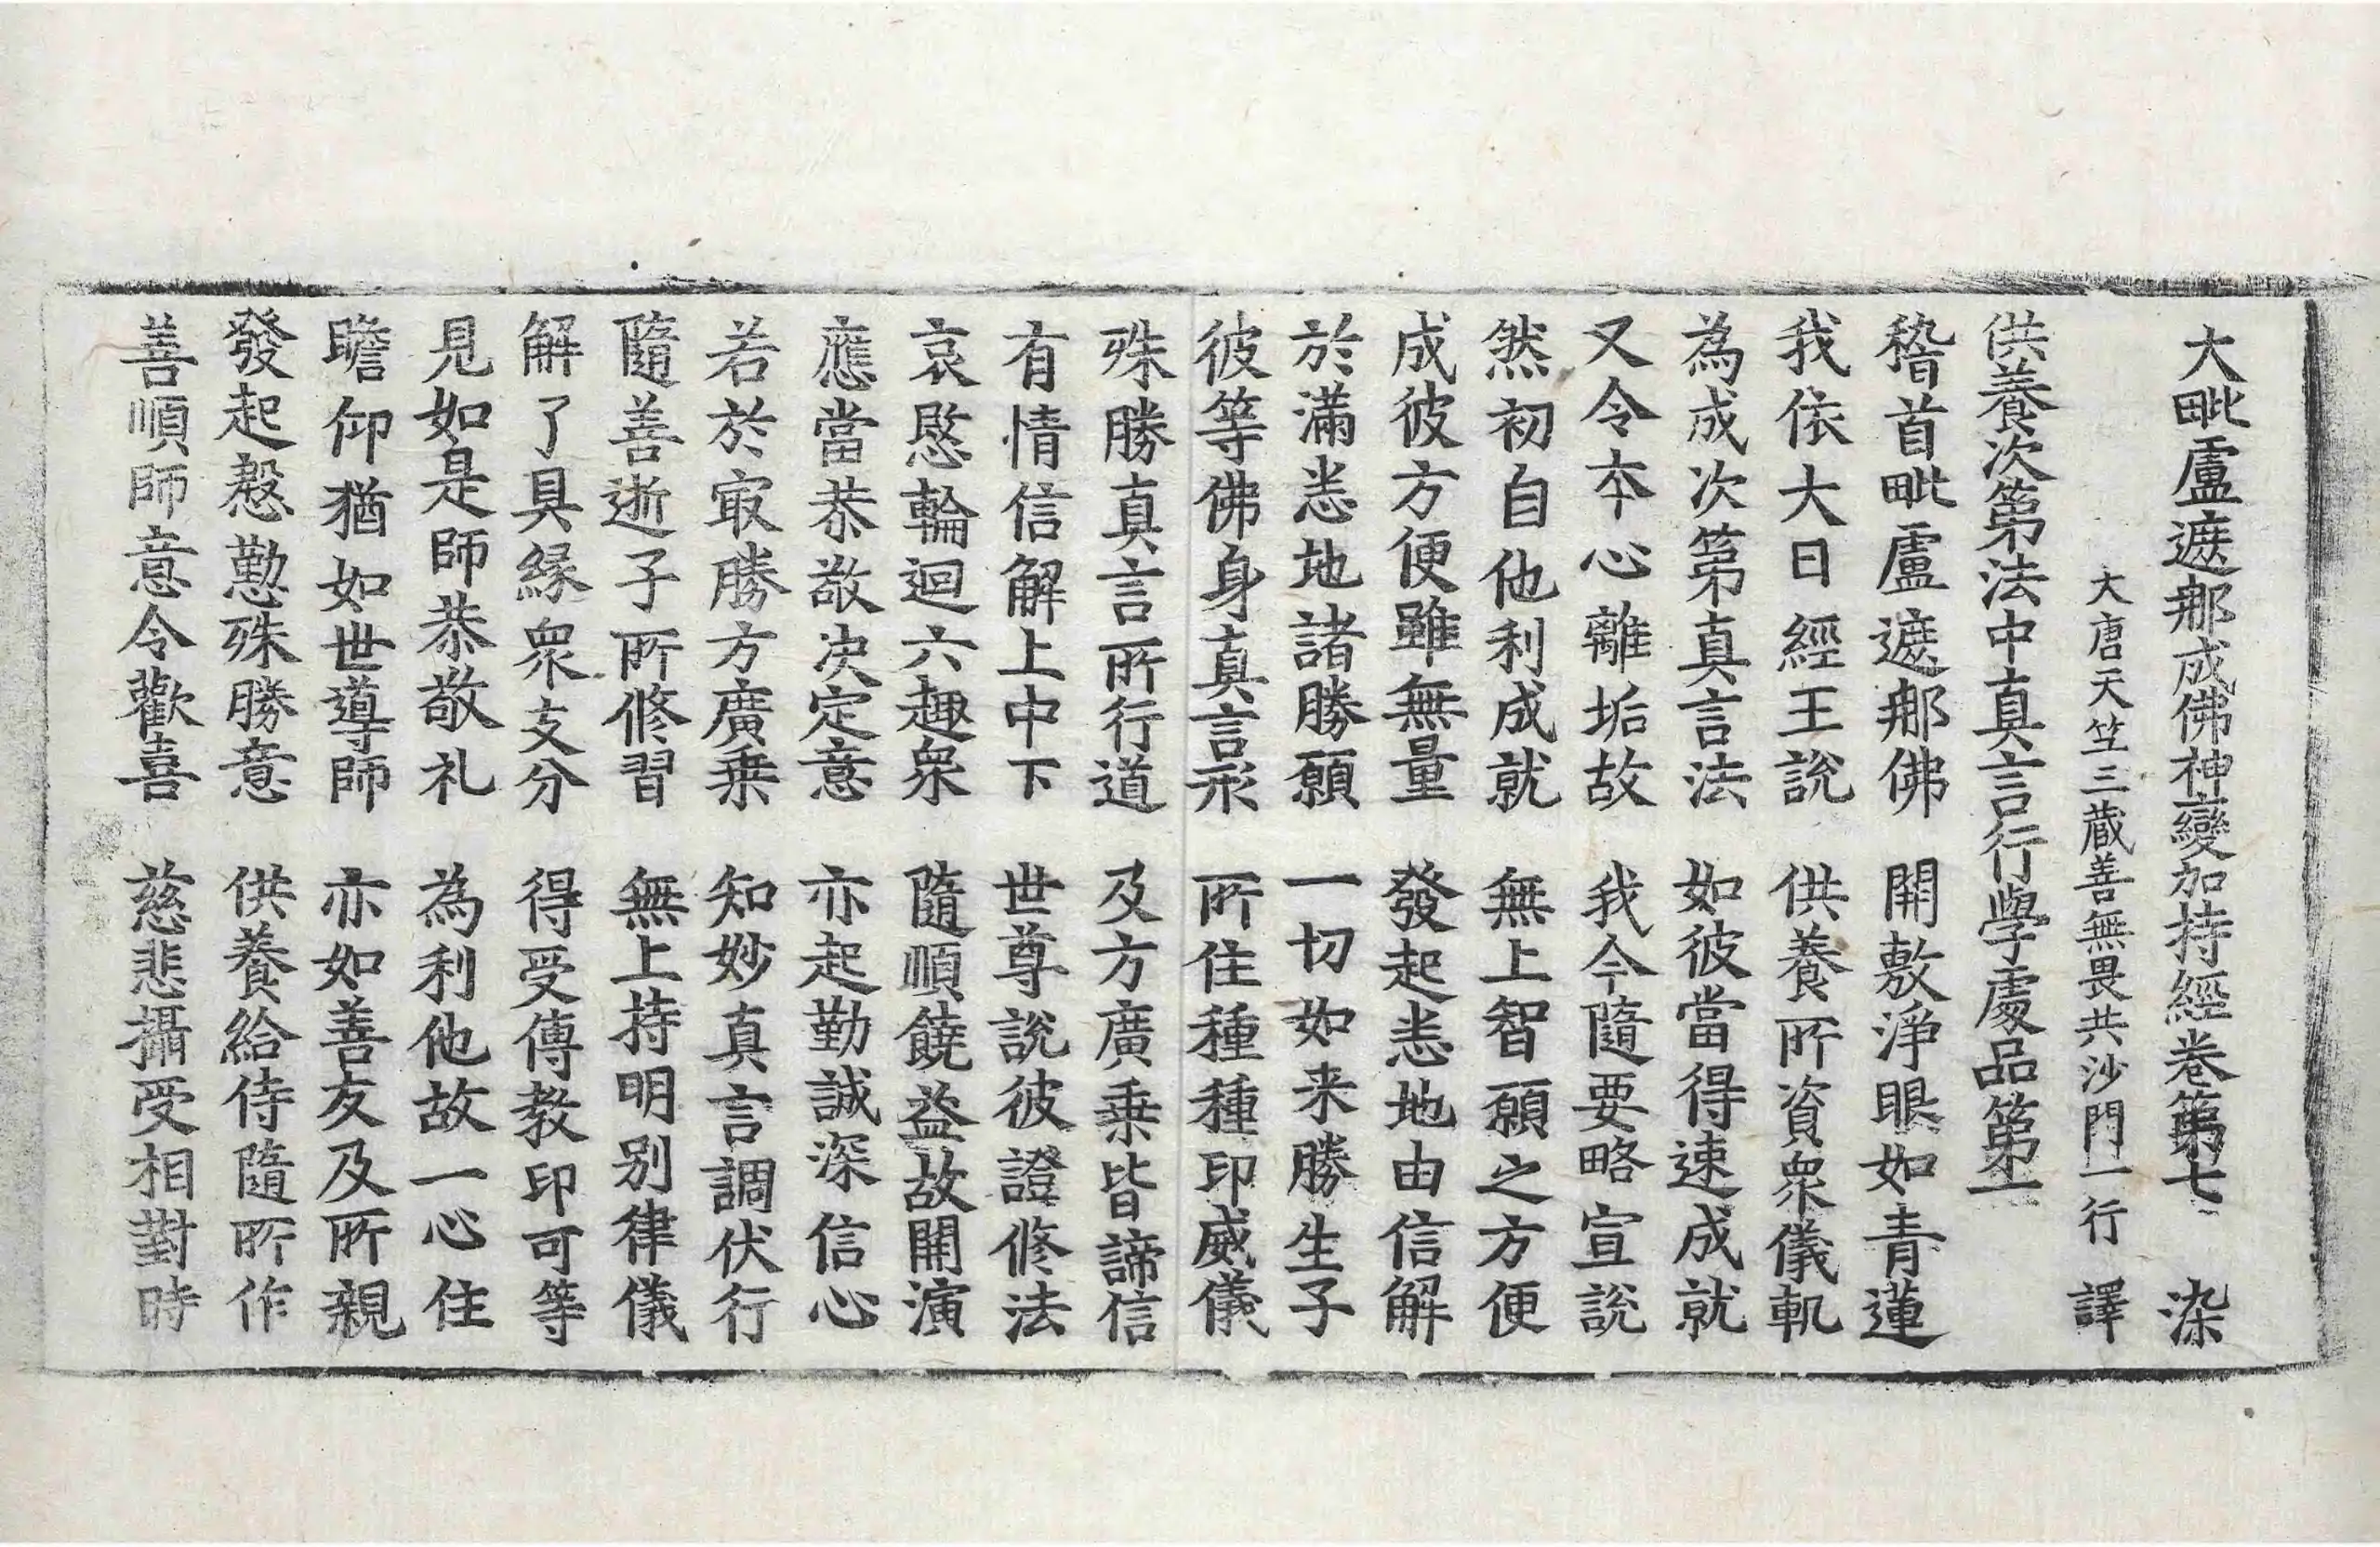 大毗盧遮那成佛神變加持經卷第七 染
大唐天笁三藏善無畏共沙門一行 譯
供養次第法中真言行學處品第一
稽首毗盧遮那佛 開敷淨眼如青蓮
我依大日經王說 供養所資衆儀軌
為成次第真言法 如彼當得速成就
又令本心離垢故 我今隨要略宣說
然初自他利成就 無上智願之方便
成彼方便雖無量 發起悉地由信解
於滿悉地諸勝願 一切如来勝生子
彼等佛身真言形 所住種種印威儀
殊勝真言所行道 及方廣乗皆諦信
有情信解上中下 世尊說彼證修法
哀愍輪迴六趣衆 隨順饒益故開演
應當恭敬决定意 亦起勤誠深信心
若於冣勝方廣乗 知妙真言調伏行
隨善逝子所修習 無上持明別律儀
解了具緣衆支分 得受傳教印可等
見如是師恭敬礼 為利他故一心住
瞻仰猶如世導師 亦如善友及所親
發起慇懃殊勝意 供養給侍隨所作
善順師意令歡喜 慈悲攝受相對時